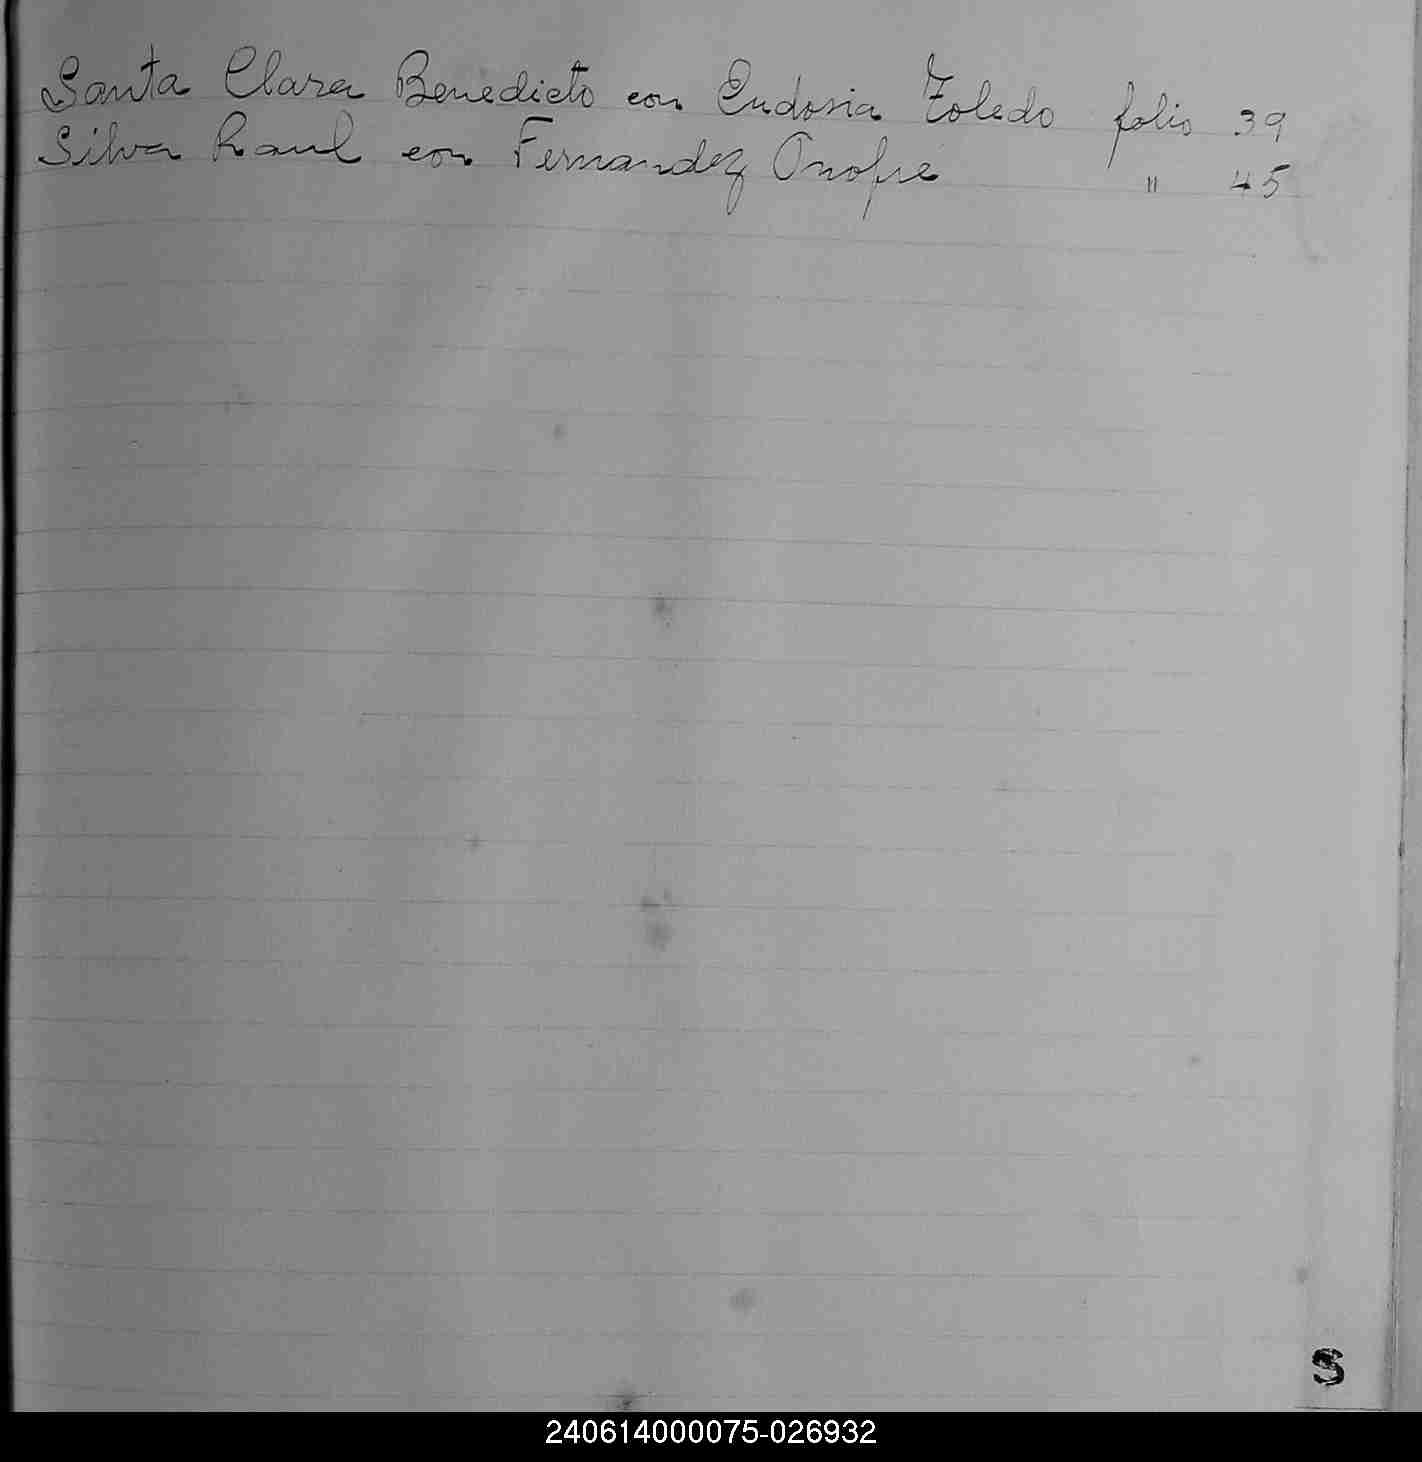 Santa Clara Benedicto con Eudosia Toledo folio 39
Silva Raul con Fernandez Onofre " 45
S
240614000075-026932